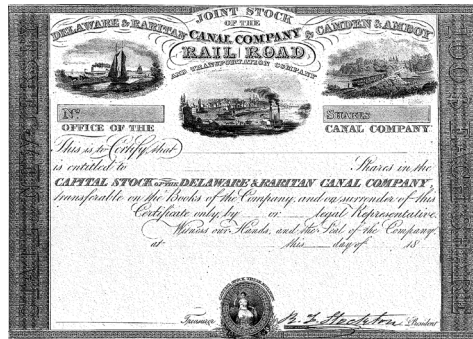 JOINT STOCK
OF THE
DELAWARE & RARITAN CANAL COMPANY & CAMDEN & AMBOY
RAIL ROAD
AND TRANSPORTATION COMPANY
No
SHARES
OFFICE OF THE CANAL COMPANY
This is to Certify, that
is entitled to Shares in the
CAPITAL STOCK OF THE DELAWARE & RARITAN CANAL COMPANY,
transferable on the Books of the Company, and on surrender of this
Certificate only, by or legal Representative.
Witness our Hands, and the Seal of the Company,
at this day of 18
Treasurer R. F. Stockton President